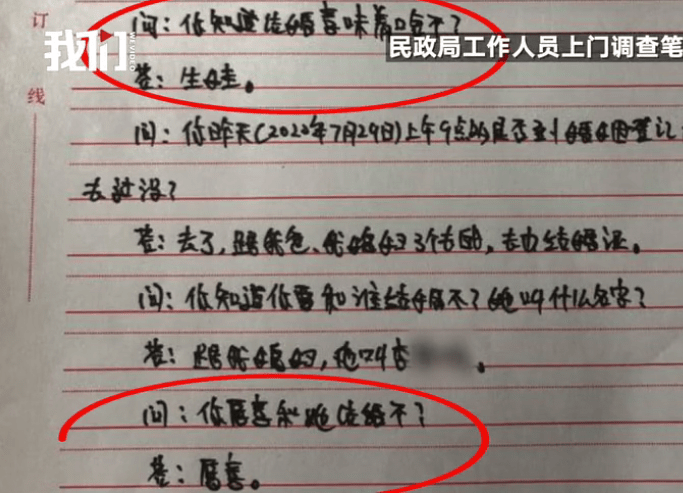 订
线
我们
WE VIDEO
民政局工作人员上门调查笔
问：你知道结婚意味着啥不？
答：生娃。
问：你昨天（2022年7月29日）上午9点的是否到婚姻登记
去过没？
答：去了，跟我爸、我媳妇3个去的，去办结婚证。
问：你知道你要和谁结婚不？她叫什么名字？
答：跟我媳妇，他叫李
问：你愿意和她结婚不？
答：愿意。